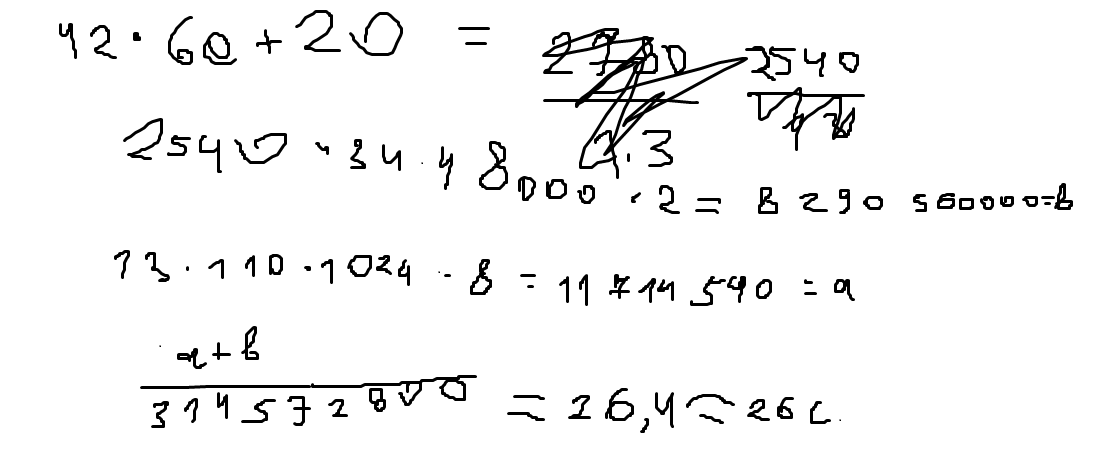 42·60+20 = 2540
2540·34·48000·2= 8290560000=b
13·110·1024·8=11714540=a
a+b
314572800 = 26,4≈26 с.